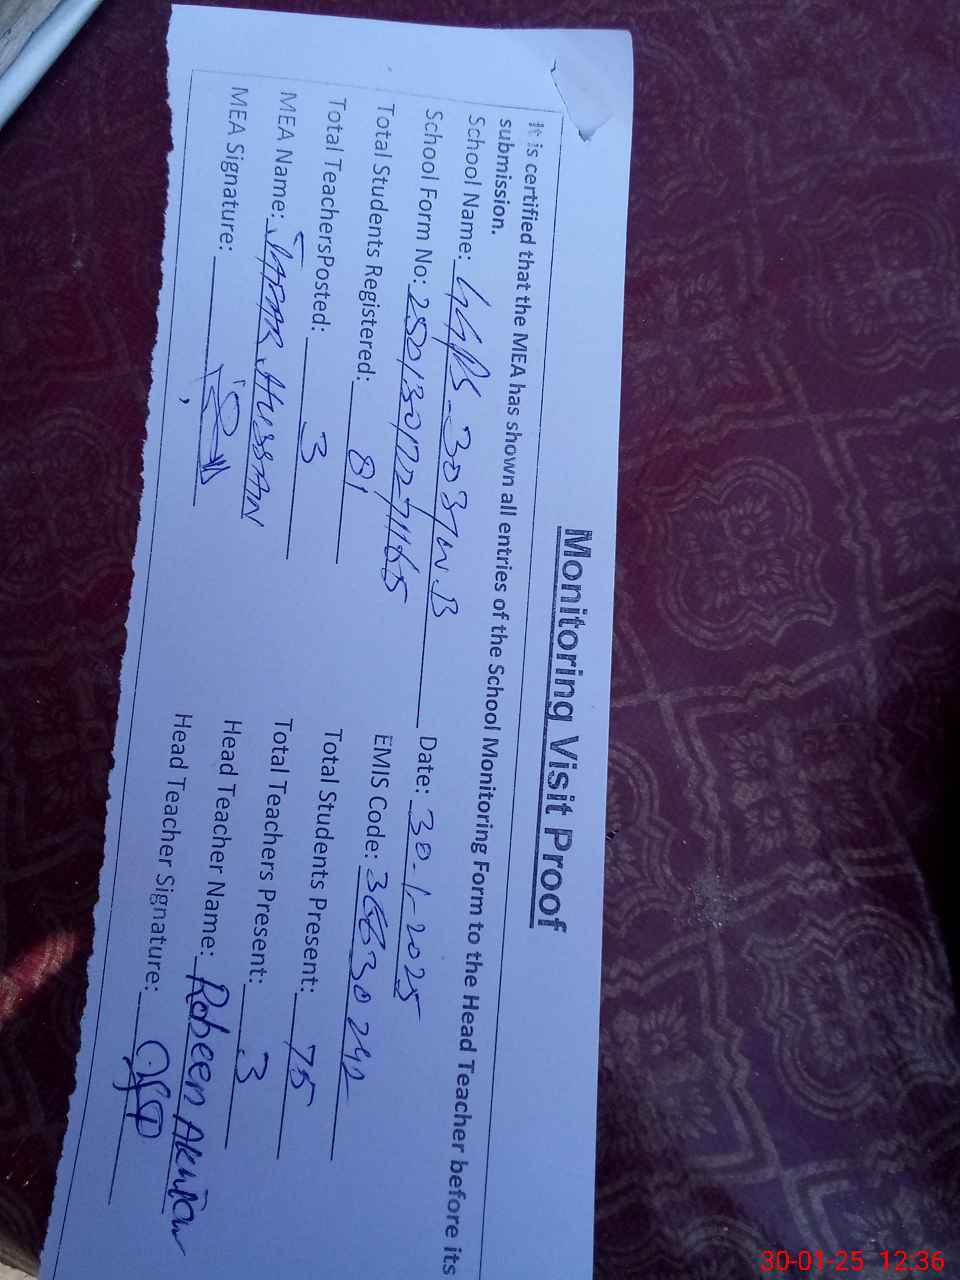 Monitoring Visit Proof
It is certified that the MEA has shown all entries of the School Monitoring Form to the Head Teacher before its
submission.
School Name: GGPS 303/W.B Date: 30-1-2025
School Form No: EMIS Code: 36630242
Total Students Registered: 81 Total Students Present: 75
Total TeachersPosted: 3 Total Teachers Present: 3
MEA Name: JAFAR HUSSAN Head Teacher Name: Robeen
MEA Signature: Head Teacher Signature:
30-01-25 12:36